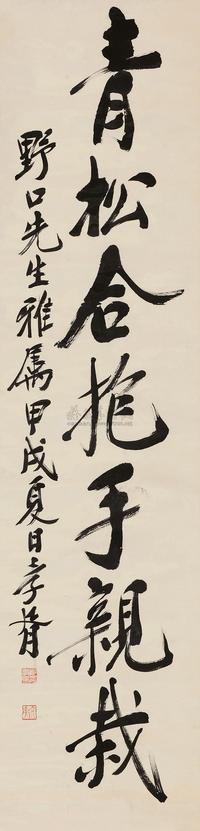 青松合抱手親栽
野口先生雅属甲戌夏日孝胥